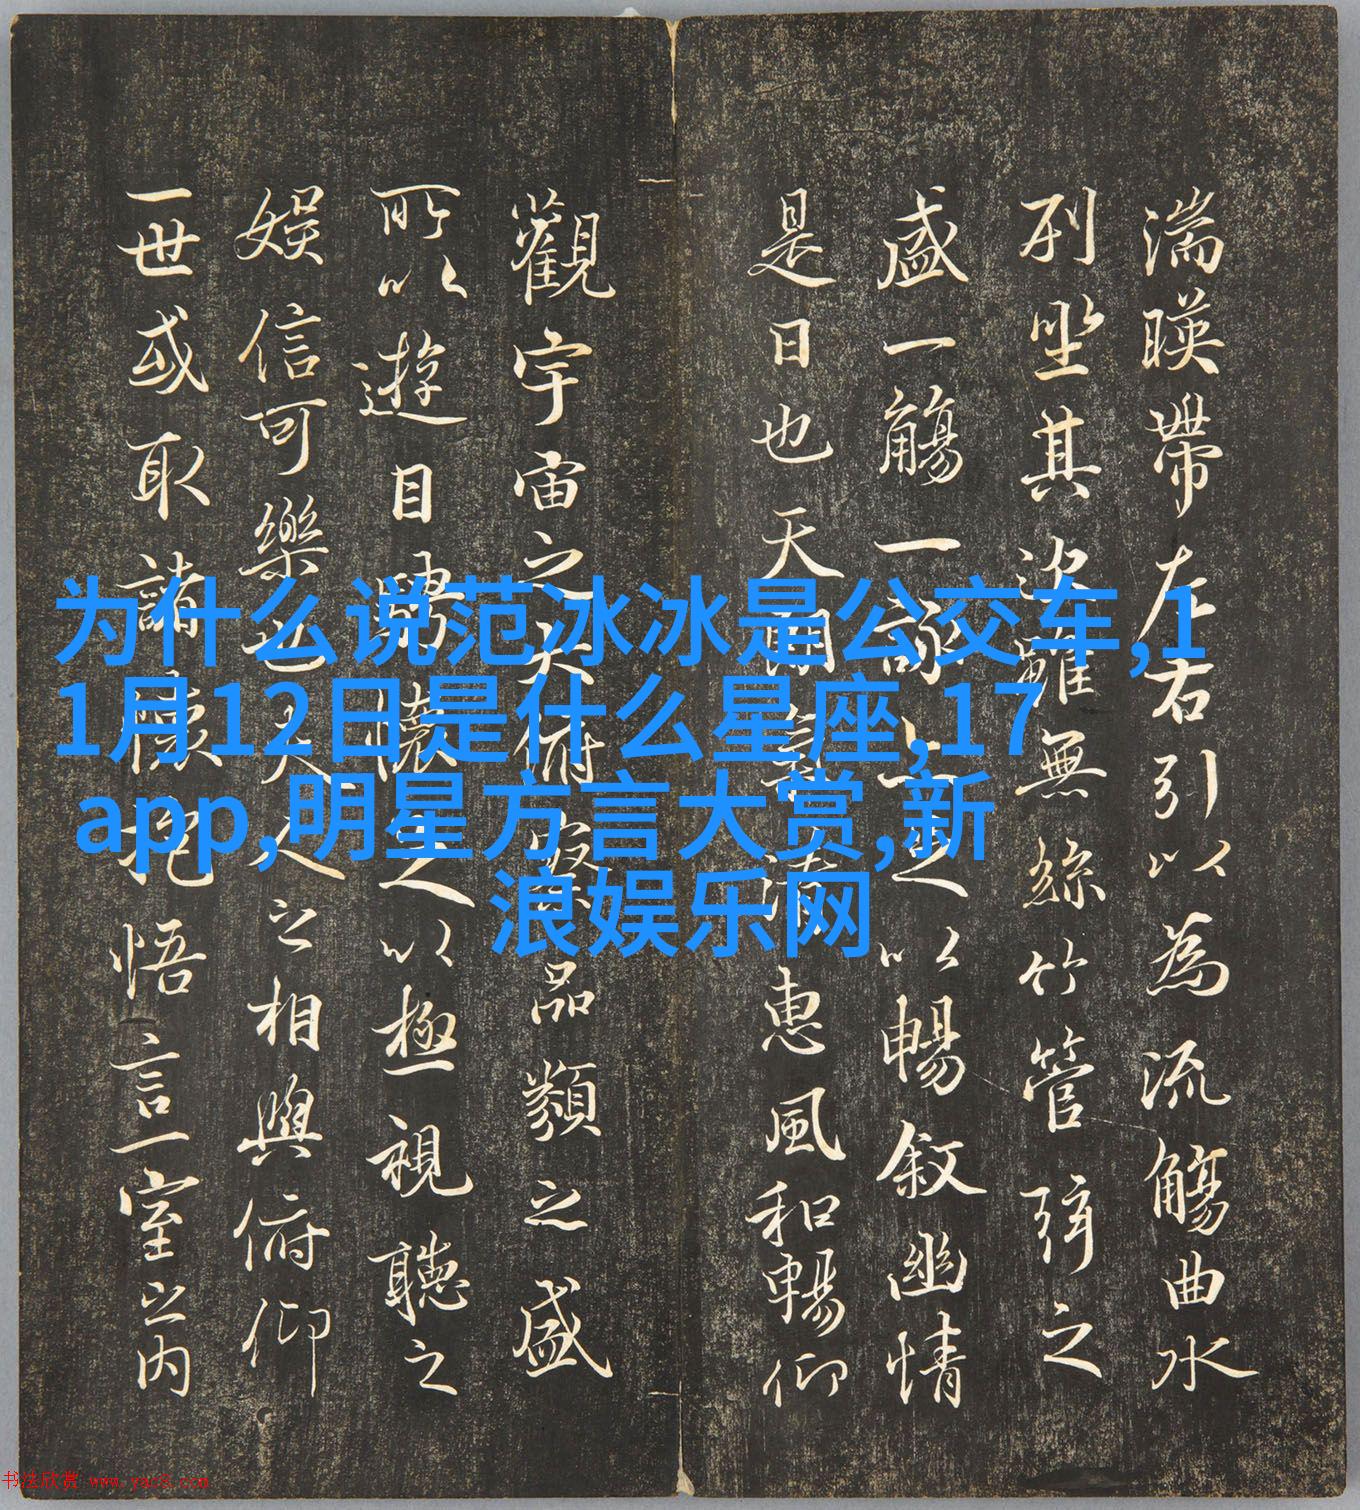 湍暎帶左右引以為流觴曲水
列坐其次雖無絲竹管弦之
盛一觴一詠足以暢叙幽情
是日也天朗氣清惠風和暢仰
觀宇宙之大俯察品類之盛
所以遊目騁懷足以極視聽之
娛信可樂也夫人之相與俯仰
一世或取諸懷抱悟言一室之内
为什么说范冰冰是公交车,1
1月12日是什么星座,17
app,明星方言大赏,新
浪娱乐网
书法欣赏 www.yac8.com